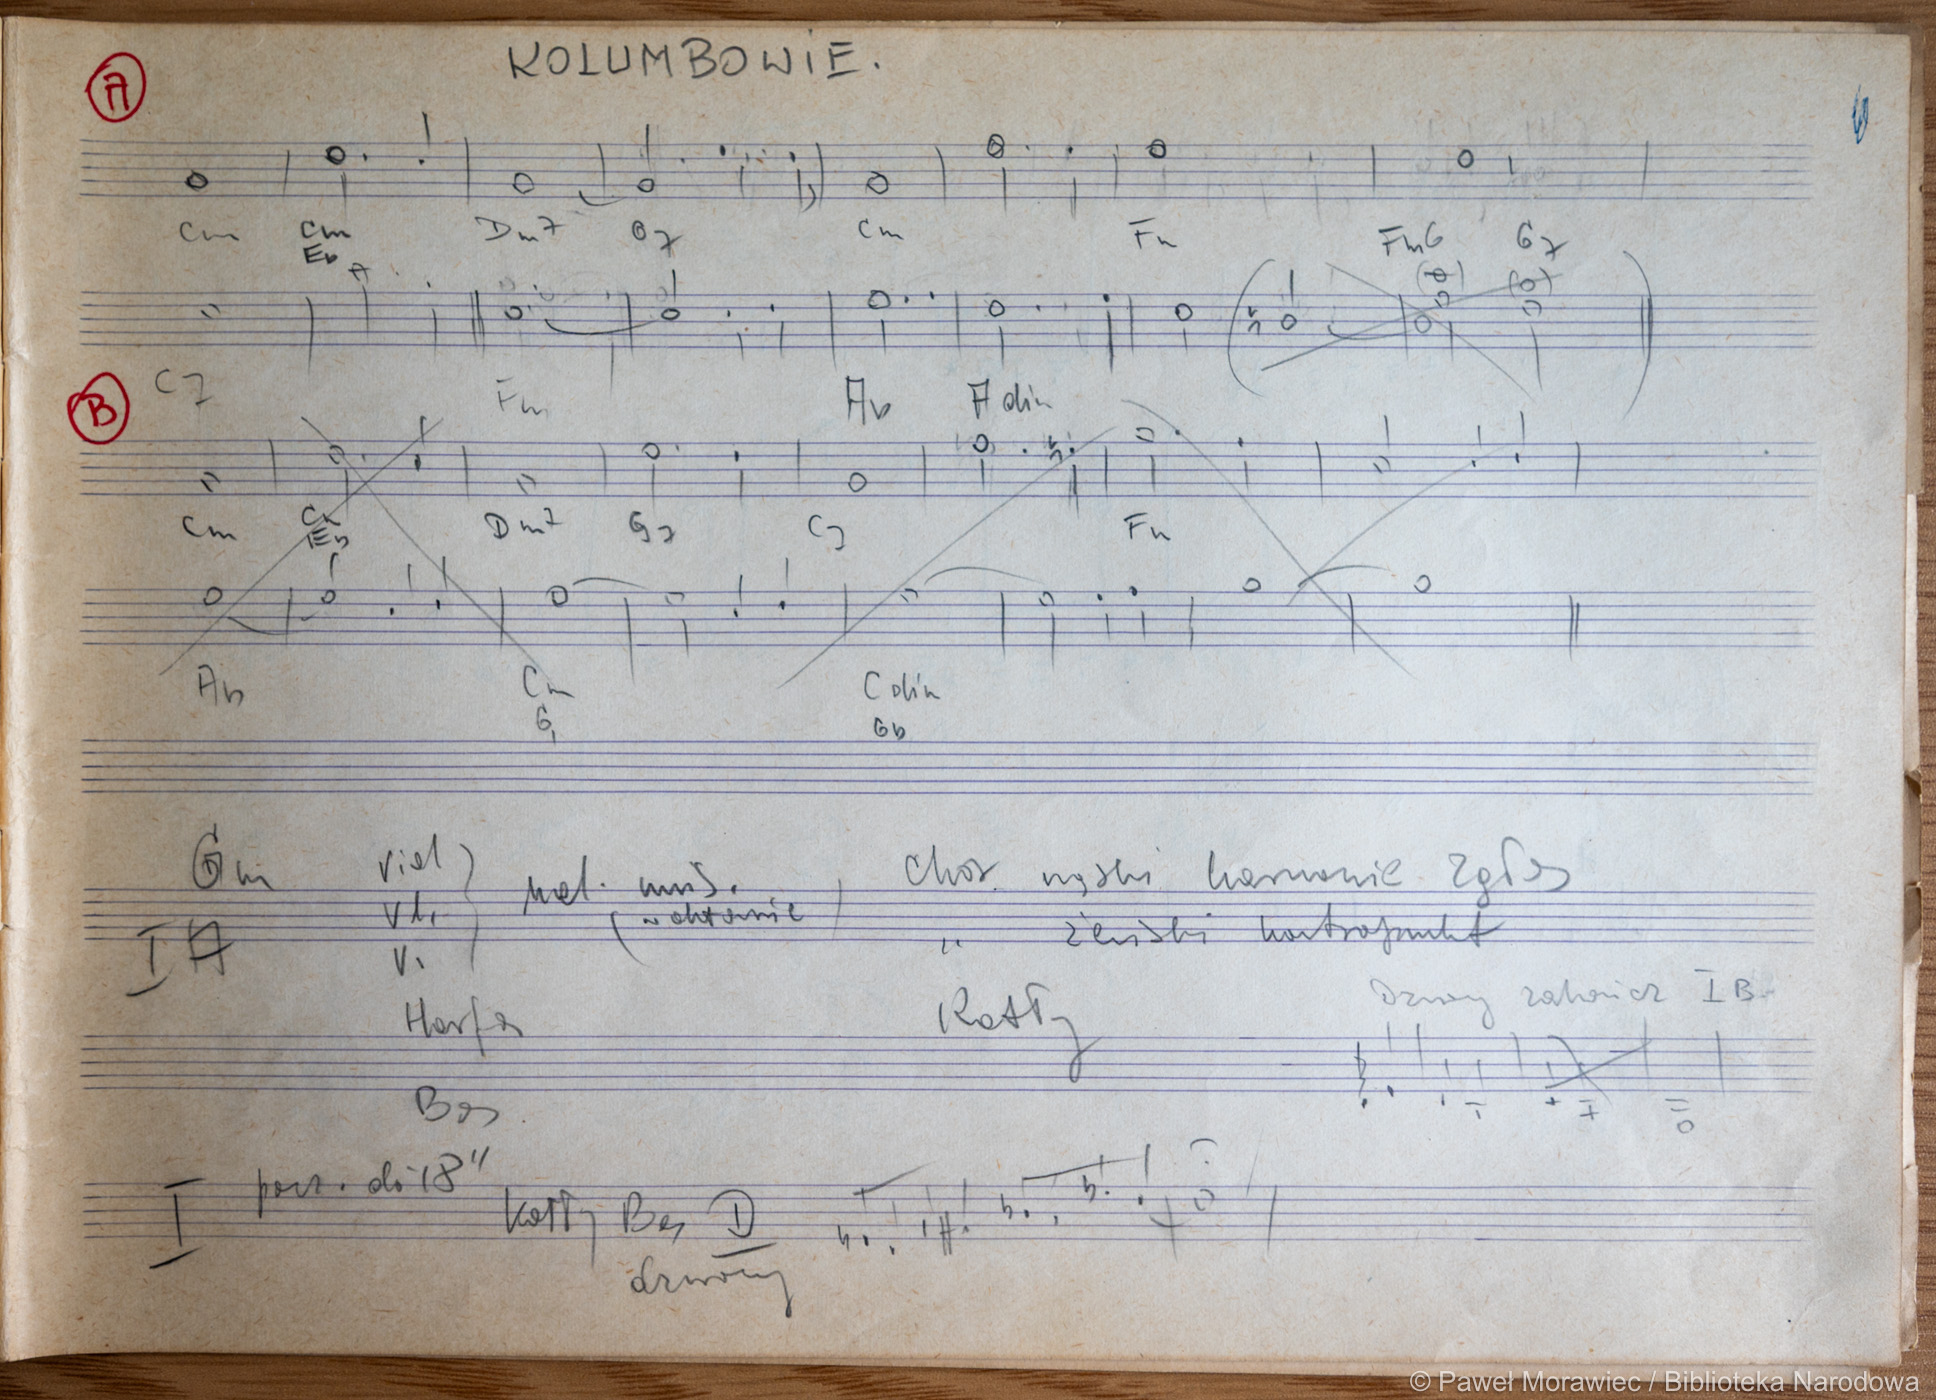 KOLUMBOWIE.
A
Cm Cm Dm7 G7 Cm Fm Fm6 G7
Eb
B C7 Fm Ab A dim
Cm Cm Dm7 G7 C7 Fm
Eb
Ab Cm C dim
G Gb
Gm viol Chór męski harmonie zgłos
vl. mel. unis.
I A (w oktawie) " żeński kontrapunkt
v.
Harfa Kotły Dzwony I B
Bas
I do 18" Kotły Bas D
dzwony
© Paweł Morawiec / Biblioteka Narodowa